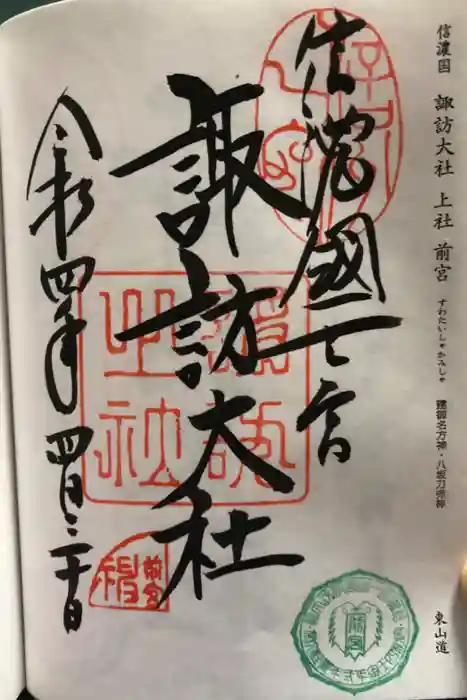 信濃国 諏訪大社 上社 前宮 すわたいしゃかみしゃ 建御名方神・八坂刀売神 東山道
信濃國一之宮
諏訪大社
令和四年四月二十日
前宮